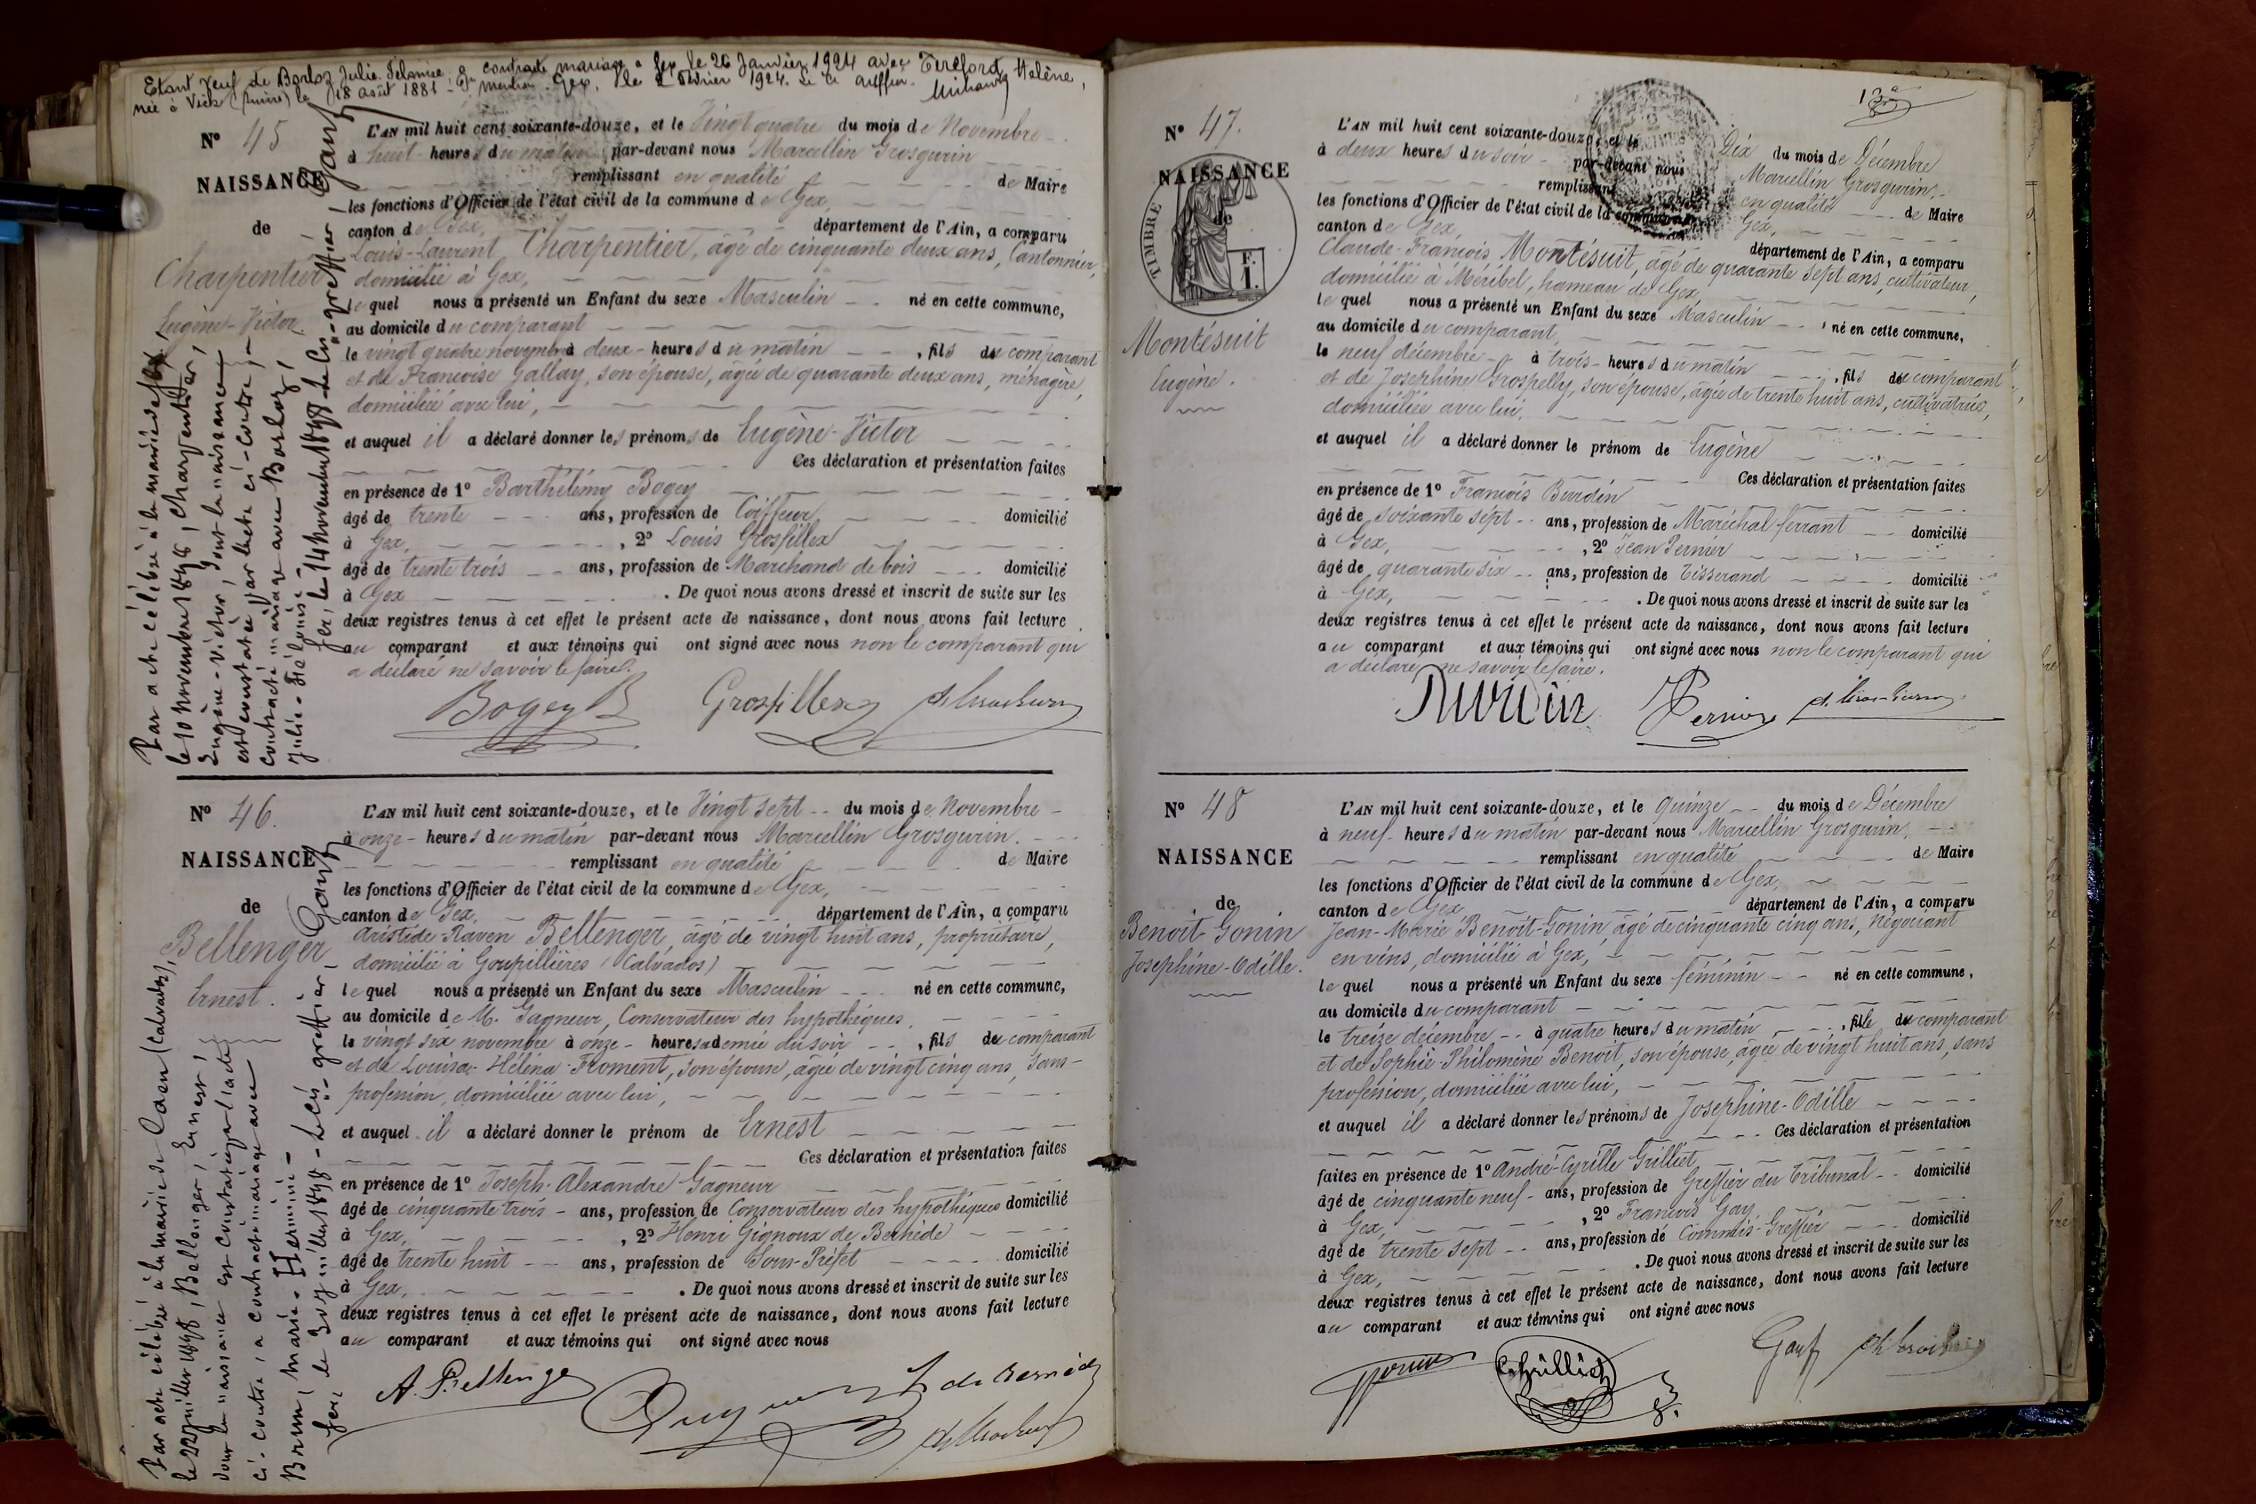 Etant Veuf de Barloz Julie Félonise a contracté mariage à Gex le 26 Janvier 1924 avec Hélène,
née à Vich (Suisse) le 18 août 1881 - Gex, le 2 février 1924. Le
Nº 45
NAISSANCE
de
Charpentier
Eugène-Victor.
Par acte célébré à la mairie de Gex,
le 10 novembre 1898, Charpentier,
Eugène-Victor, dont la naissance
est constatée par l'acte ci-contre, a
contracté mariage avec Barloz,
Julie-Félonise -
Gex, le 14 novembre 1898 - Le Cis-greffier, Gauf
L'AN mil huit cent soixante-douze, et le Vingt quatre du mois de Novembre
à huit heures du matin par-devant nous Marcellin Grosgurin
remplissant en qualité de Maire
les fonctions d'Officier de l'état civil de la commune de Gex,
canton de Gex, département de l'Ain, a comparu
Louis-Laurent Charpentier, âgé de cinquante deux ans, Cantonnier,
domicilié à Gex,
lequel nous a présenté un Enfant du sexe Masculin né en cette commune,
au domicile du comparant
le vingt quatre novembre à deux heures du matin, fils du comparant
et de Françoise Gallay, son épouse, âgée de quarante deux ans, ménagère,
domiciliée avec lui,
et auquel il a déclaré donner les prénoms de Eugène-Victor
Ces déclaration et présentation faites
en présence de 1º Barthélémy Bogey
âgé de trente ans, profession de Coiffeur domicilié
à Gex, , 2º Louis Grosfillex
âgé de trente trois ans, profession de Marchand de bois domicilié
à Gex . De quoi nous avons dressé et inscrit de suite sur les
deux registres tenus à cet effet le présent acte de naissance, dont nous avons fait lecture
au comparant et aux témoins qui ont signé avec nous non le comparant qui
a déclaré ne savoir le faire.
Bogey B Grosfillex
Nº 46.
NAISSANCE
de
Bellenger
Ernest.
Par acte célébré à la mairie de Caen (Calvados),
le 22 juillet 1898, Bellenger, Ernest,
dont la naissance est constatée par l'acte
ci-contre, a contracté mariage avec
Brun, Marie-Herminie -
Gex, le 30 juillet 1898 - Le Cis-greffier, Gauf
L'AN mil huit cent soixante-douze, et le Vingt sept du mois de Novembre
à onze heures du matin par-devant nous Marcellin Grosgurin.
remplissant en qualité de Maire
les fonctions d'Officier de l'état civil de la commune de Gex,
canton de Gex, département de l'Ain, a comparu
Aristide-Raven Bellenger, âgé de vingt huit ans, propriétaire,
domicilié à Goupillières (Calvados)
lequel nous a présenté un Enfant du sexe Masculin né en cette commune,
au domicile de M. Gagneur, Conservateur des hypothèques
le vingt six novembre à onze heures & demie du soir, fils du comparant
et de Louisa-Héléna Froment, son épouse, âgée de vingt cinq ans, Sans-
profession, domiciliée avec lui,
et auquel il a déclaré donner le prénom de Ernest
Ces déclaration et présentation faites
en présence de 1º Joseph-Alexandre Gagneur
âgé de cinquante trois ans, profession de Conservateur des hypothèques domicilié
à Gex, , 2º Henri Gignoux de Bernède
âgé de trente huit ans, profession de Sous-Préfet domicilié
à Gex, . De quoi nous avons dressé et inscrit de suite sur les
deux registres tenus à cet effet le présent acte de naissance, dont nous avons fait lecture
au comparant et aux témoins qui ont signé avec nous
A. Bellenger
Nº 47.
NAISSANCE
de
TIMBRE
F.
1.
Montésuit
Eugène.
L'AN mil huit cent soixante-douze, et le Dix du mois de Décembre
à deux heures du soir par-devant nous Marcellin Grosgurin,
remplissant en qualité de Maire
les fonctions d'Officier de l'état civil de la commune de Gex,
canton de Gex, département de l'Ain, a comparu
Claude-François Montésuit, âgé de quarante sept ans, cultivateur,
domicilié à Méribel, hameau de Gex,
lequel nous a présenté un Enfant du sexe Masculin né en cette commune,
au domicile du comparant,
le neuf décembre à trois heures du matin, fils du comparant
et de Josephine Grospelly, son épouse, âgée de trente huit ans, cultivatrice,
domiciliée avec lui,
et auquel il a déclaré donner le prénom de Eugène
Ces déclaration et présentation faites
en présence de 1º François Burdin
âgé de soixante sept ans, profession de Maréchal ferrant domicilié
à Gex, , 2º Jean Pernier
âgé de quarante six ans, profession de Tisserand domicilié
à Gex, . De quoi nous avons dressé et inscrit de suite sur les
deux registres tenus à cet effet le présent acte de naissance, dont nous avons fait lecture
au comparant et aux témoins qui ont signé avec nous non le comparant qui
a déclaré ne savoir le faire.
Burdin Pernier
Nº 48
NAISSANCE
de
Benoit-Gonin
Josephine-Odille.
L'AN mil huit cent soixante-douze, et le quinze du mois de Décembre
à neuf heures du matin par-devant nous Marcellin Grosgurin,
remplissant en qualité de Maire
les fonctions d'Officier de l'état civil de la commune de Gex,
canton de Gex, département de l'Ain, a comparu
Jean-Marie Benoit-Gonin, âgé de cinquante cinq ans, Négociant
en vins, domicilié à Gex,
lequel nous a présenté un Enfant du sexe féminin né en cette commune,
au domicile du comparant
le treize décembre à quatre heures du matin, fille du comparant
et de Sophie-Philomène Benoit, son épouse, âgée de vingt huit ans, sans
profession, domiciliée avec lui,
et auquel il a déclaré donner les prénoms de Josephine-Odille
Ces déclaration et présentation
faites en présence de 1º André-Cyrille Grilliet
âgé de cinquante neuf ans, profession de Greffier du Tribunal domicilié
à Gex, , 2º François Gay
âgé de trente sept ans, profession de Commis-Greffier domicilié
à Gex, . De quoi nous avons dressé et inscrit de suite sur les
deux registres tenus à cet effet le présent acte de naissance, dont nous avons fait lecture
au comparant et aux témoins qui ont signé avec nous